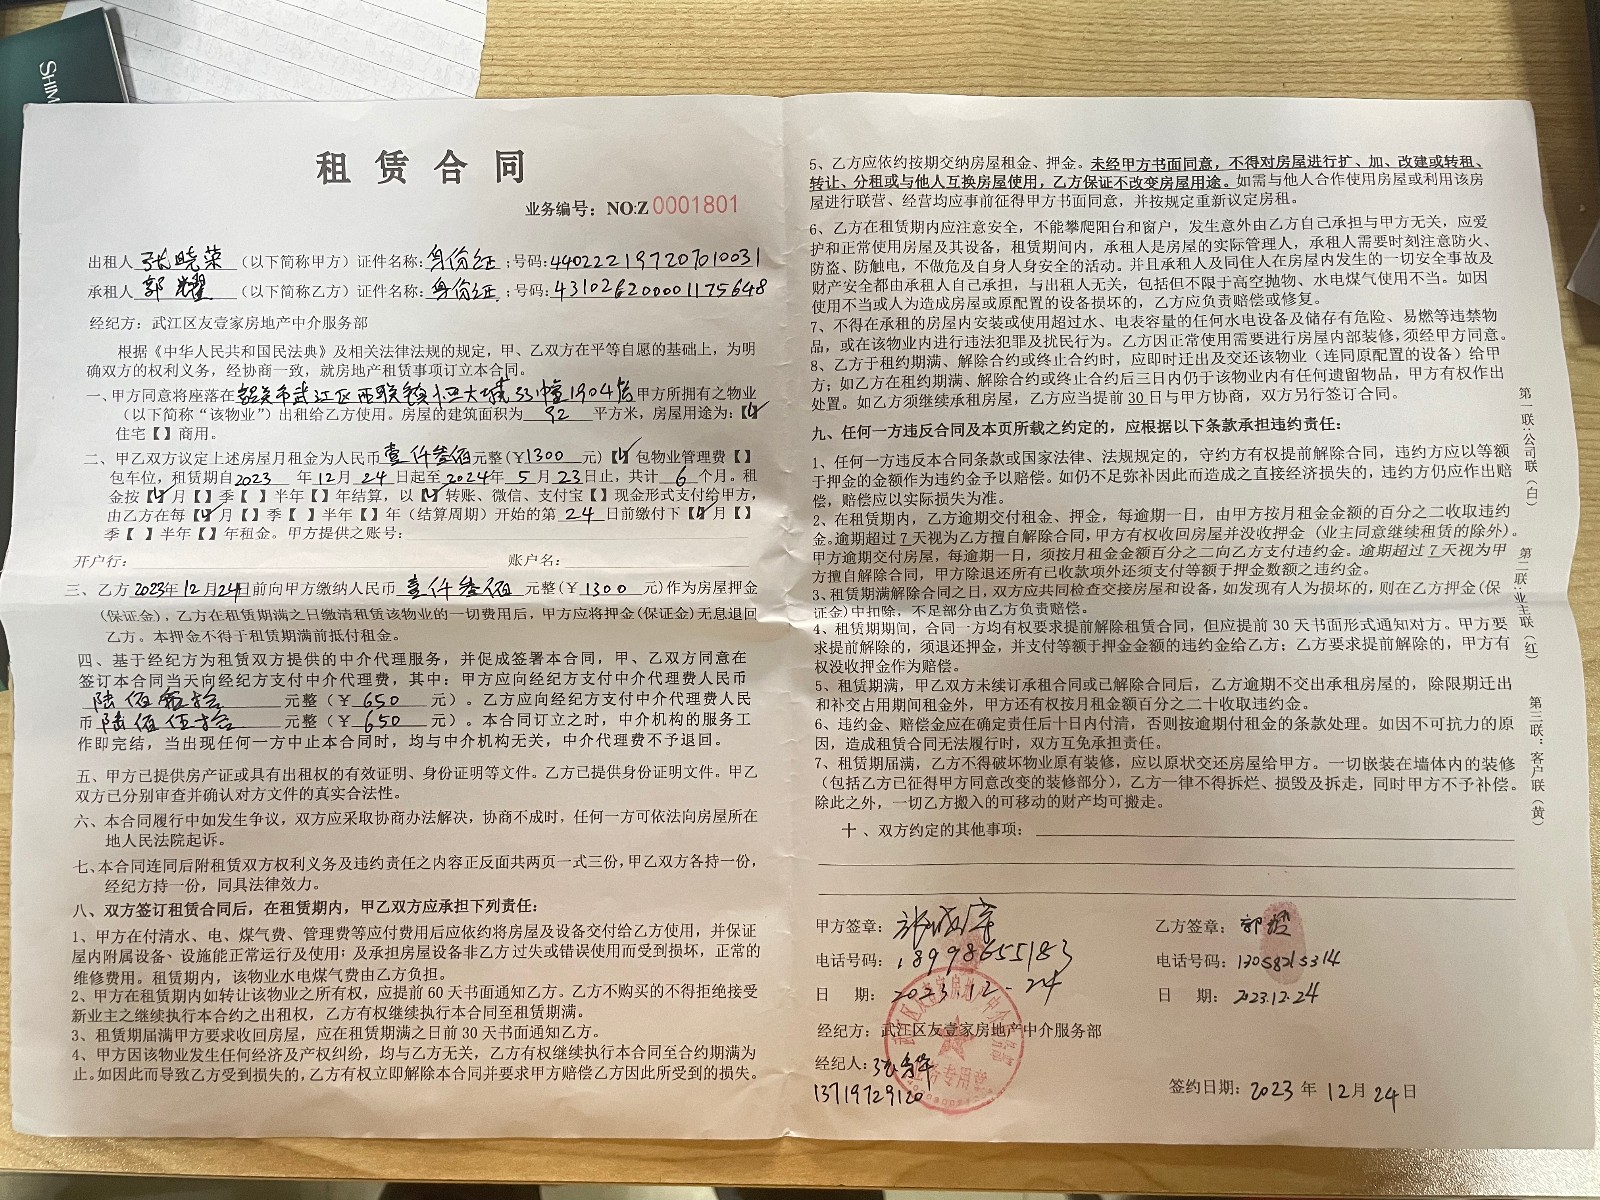 SHIM
租赁合同
业务编号：NO:Z 0001801
出租人 张晓荣 （以下简称甲方）证件名称：身份证；号码：440222197207010031
承租人 郭耀 （以下简称乙方）证件名称：身份证；号码：431026200001175648
经纪方：武江区友壹家房地产中介服务部
根据《中华人民共和国民法典》及相关法律法规的规定，甲、乙双方在平等自愿的基础上，为明
确双方的权利义务，经协商一致，就房地产租赁事项订立本合同。
一、甲方同意将座落在韶关市武江区西联镇恒大城53幢1904房甲方所拥有之物业
（以下简称“该物业”）出租给乙方使用。房屋的建筑面积为 92 平方米，房屋用途为：【✓】
住宅【】商用。
二、甲乙双方议定上述房屋月租金为人民币壹仟叁佰元整（¥1300 元）【✓】包物业管理费【】
包车位，租赁期自2023 年12月 24 日起至2024年 5 月 23日止，共计 6 个月。租
金按【✓】月【】季【】半年【】年结算，以【✓】转账、微信、支付宝【】现金形式支付给甲方，
由乙方在每【✓】月【】季【】半年【】年（结算周期）开始的第 24 日前缴付下【✓】月【】
季【】半年【】年租金。甲方提供之账号：
开户行： 账户名：
三、乙方2023年12月24日前向甲方缴纳人民币 壹仟叁佰 元整（¥1300 元）作为房屋押金
（保证金），乙方在租赁期满之日缴清租赁该物业的一切费用后，甲方应将押金(保证金)无息退回
乙方。本押金不得于租赁期满前抵付租金。
四、基于经纪方为租赁双方提供的中介代理服务，并促成签署本合同，甲、乙双方同意在
签订本合同当天向经纪方支付中介代理费，其中：甲方应向经纪方支付中介代理费人民币
陆佰伍拾 元整（¥ 650 元）。乙方应向经纪方支付中介代理费人民
币陆佰伍拾 元整（¥ 650 元）。本合同订立之时，中介机构的服务工
作即完结，当出现任何一方中止本合同时，均与中介机构无关，中介代理费不予退回。
五、甲方已提供房产证或具有出租权的有效证明、身份证明等文件。乙方已提供身份证明文件。甲乙
双方已分别审查并确认对方文件的真实合法性。
六、本合同履行中如发生争议，双方应采取协商办法解决，协商不成时，任何一方可依法向房屋所在
地人民法院起诉。
七、本合同连同后附租赁双方权利义务及违约责任之内容正反面共两页一式三份，甲乙双方各持一份，
经纪方持一份，同具法律效力。
八、双方签订租赁合同后，在租赁期内，甲乙双方应承担下列责任：
1、甲方在付清水、电、煤气费、管理费等应付费用后应依约将房屋及设备交付给乙方使用，并保证
屋内附属设备、设施能正常运行及使用；及承担房屋设备非乙方过失或错误使用而受到损坏，正常的
维修费用。租赁期内，该物业水电煤气费由乙方负担。
2、甲方在租赁期内如转让该物业之所有权，应提前 60 天书面通知乙方。乙方不购买的不得拒绝接受
新业主之继续执行本合约之出租权，乙方有权继续执行本合同至租赁期满。
3、租赁期届满甲方要求收回房屋，应在租赁期满之日前 30 天书面通知乙方。
4、甲方因该物业发生任何经济及产权纠纷，均与乙方无关，乙方有权继续执行本合同至合约期满为
止。如因此而导致乙方受到损失的，乙方有权立即解除本合同并要求甲方赔偿乙方因此所受到的损失。
5、乙方应依约按期交纳房屋租金、押金。未经甲方书面同意，不得对房屋进行扩、加、改建或转租、
转让、分租或与他人互换房屋使用，乙方保证不改变房屋用途。如需与他人合作使用房屋或利用该房
屋进行联营、经营均应事前征得甲方书面同意，并按规定重新议定房租。
6、乙方在租赁期内应注意安全，不能攀爬阳台和窗户，发生意外由乙方自己承担与甲方无关，应爱
护和正常使用房屋及其设备，租赁期间内，承租人是房屋的实际管理人，承租人需要时刻注意防火、
防盗、防触电，不做危及自身人身安全的活动。并且承租人及同住人在房屋内发生的一切安全事故及
财产安全都由承租人自己承担，与出租人无关，包括但不限于高空抛物、水电煤气使用不当。如因
使用不当或人为造成房屋或原配置的设备损坏的，乙方应负责赔偿或修复。
7、不得在承租的房屋内安装或使用超过水、电表容量的任何水电设备及储存有危险、易燃等违禁物
品，或在该物业内进行违法犯罪及扰民行为。乙方因正常使用需要进行房屋内部装修，须经甲方同意。
8、乙方于租约期满、解除合约或终止合约时，应即时迁出及交还该物业（连同原配置的设备）给甲
方；如乙方在租约期满、解除合约或终止合约后三日内仍于该物业内有任何遗留物品，甲方有权作出
处置。如乙方须继续承租房屋，乙方应当提前 30 日与甲方协商，双方另行签订合同。
九、任何一方违反合同及本页所载之约定的，应根据以下条款承担违约责任：
1、任何一方违反本合同条款或国家法律、法规规定的，守约方有权提前解除合同，违约方应以等额
于押金的金额作为违约金予以赔偿。如仍不足弥补因此而造成之直接经济损失的，违约方仍应作出赔
偿，赔偿应以实际损失为准。
2、在租赁期内，乙方逾期交付租金、押金，每逾期一日，由甲方按月租金金额的百分之二收取违约
金。逾期超过 7 天视为乙方擅自解除合同，甲方有权收回房屋并没收押金（业主同意继续租赁的除外）。
甲方逾期交付房屋，每逾期一日，须按月租金金额百分之二向乙方支付违约金。逾期超过 7 天视为甲
方擅自解除合同，甲方除退还所有已收款项外还须支付等额于押金数额之违约金。
3、租赁期满解除合同之日，双方应共同检查交接房屋和设备，如发现有人为损坏的，则在乙方押金(保
证金)中扣除，不足部分由乙方负责赔偿。
4、租赁期期间，合同一方均有权要求提前解除租赁合同，但应提前 30 天书面形式通知对方。甲方要
求提前解除的，须退还押金，并支付等额于押金金额的违约金给乙方；乙方要求提前解除的，甲方有
权没收押金作为赔偿。
5、租赁期满，甲乙双方未续订承租合同或已解除合同后，乙方逾期不交出承租房屋的，除限期迁出
和补交占用期间租金外，甲方还有权按月租金额百分之二十收取违约金。
6、违约金、赔偿金应在确定责任后十日内付清，否则按逾期付租金的条款处理。如因不可抗力的原
因，造成租赁合同无法履行时，双方互免承担责任。
7、租赁期届满，乙方不得破坏物业原有装修，应以原状交还房屋给甲方。一切嵌装在墙体内的装修
（包括乙方已征得甲方同意改变的装修部分），乙方一律不得拆烂、损毁及拆走，同时甲方不予补偿。
除此之外，一切乙方搬入的可移动的财产均可搬走。
十、双方约定的其他事项：
甲方签章： 乙方签章：郭耀
电话号码：18998655183 电话号码：13058215314
日 期：2023.12.24 日 期：2023.12.24
经纪方：武江区友壹家房地产中介服务部
经纪人：
13719729120
签约日期：2023 年 12月 24 日
业务专用章
第一联：公司联（白）
第二联：业主联（红）
第三联：客户联（黄）